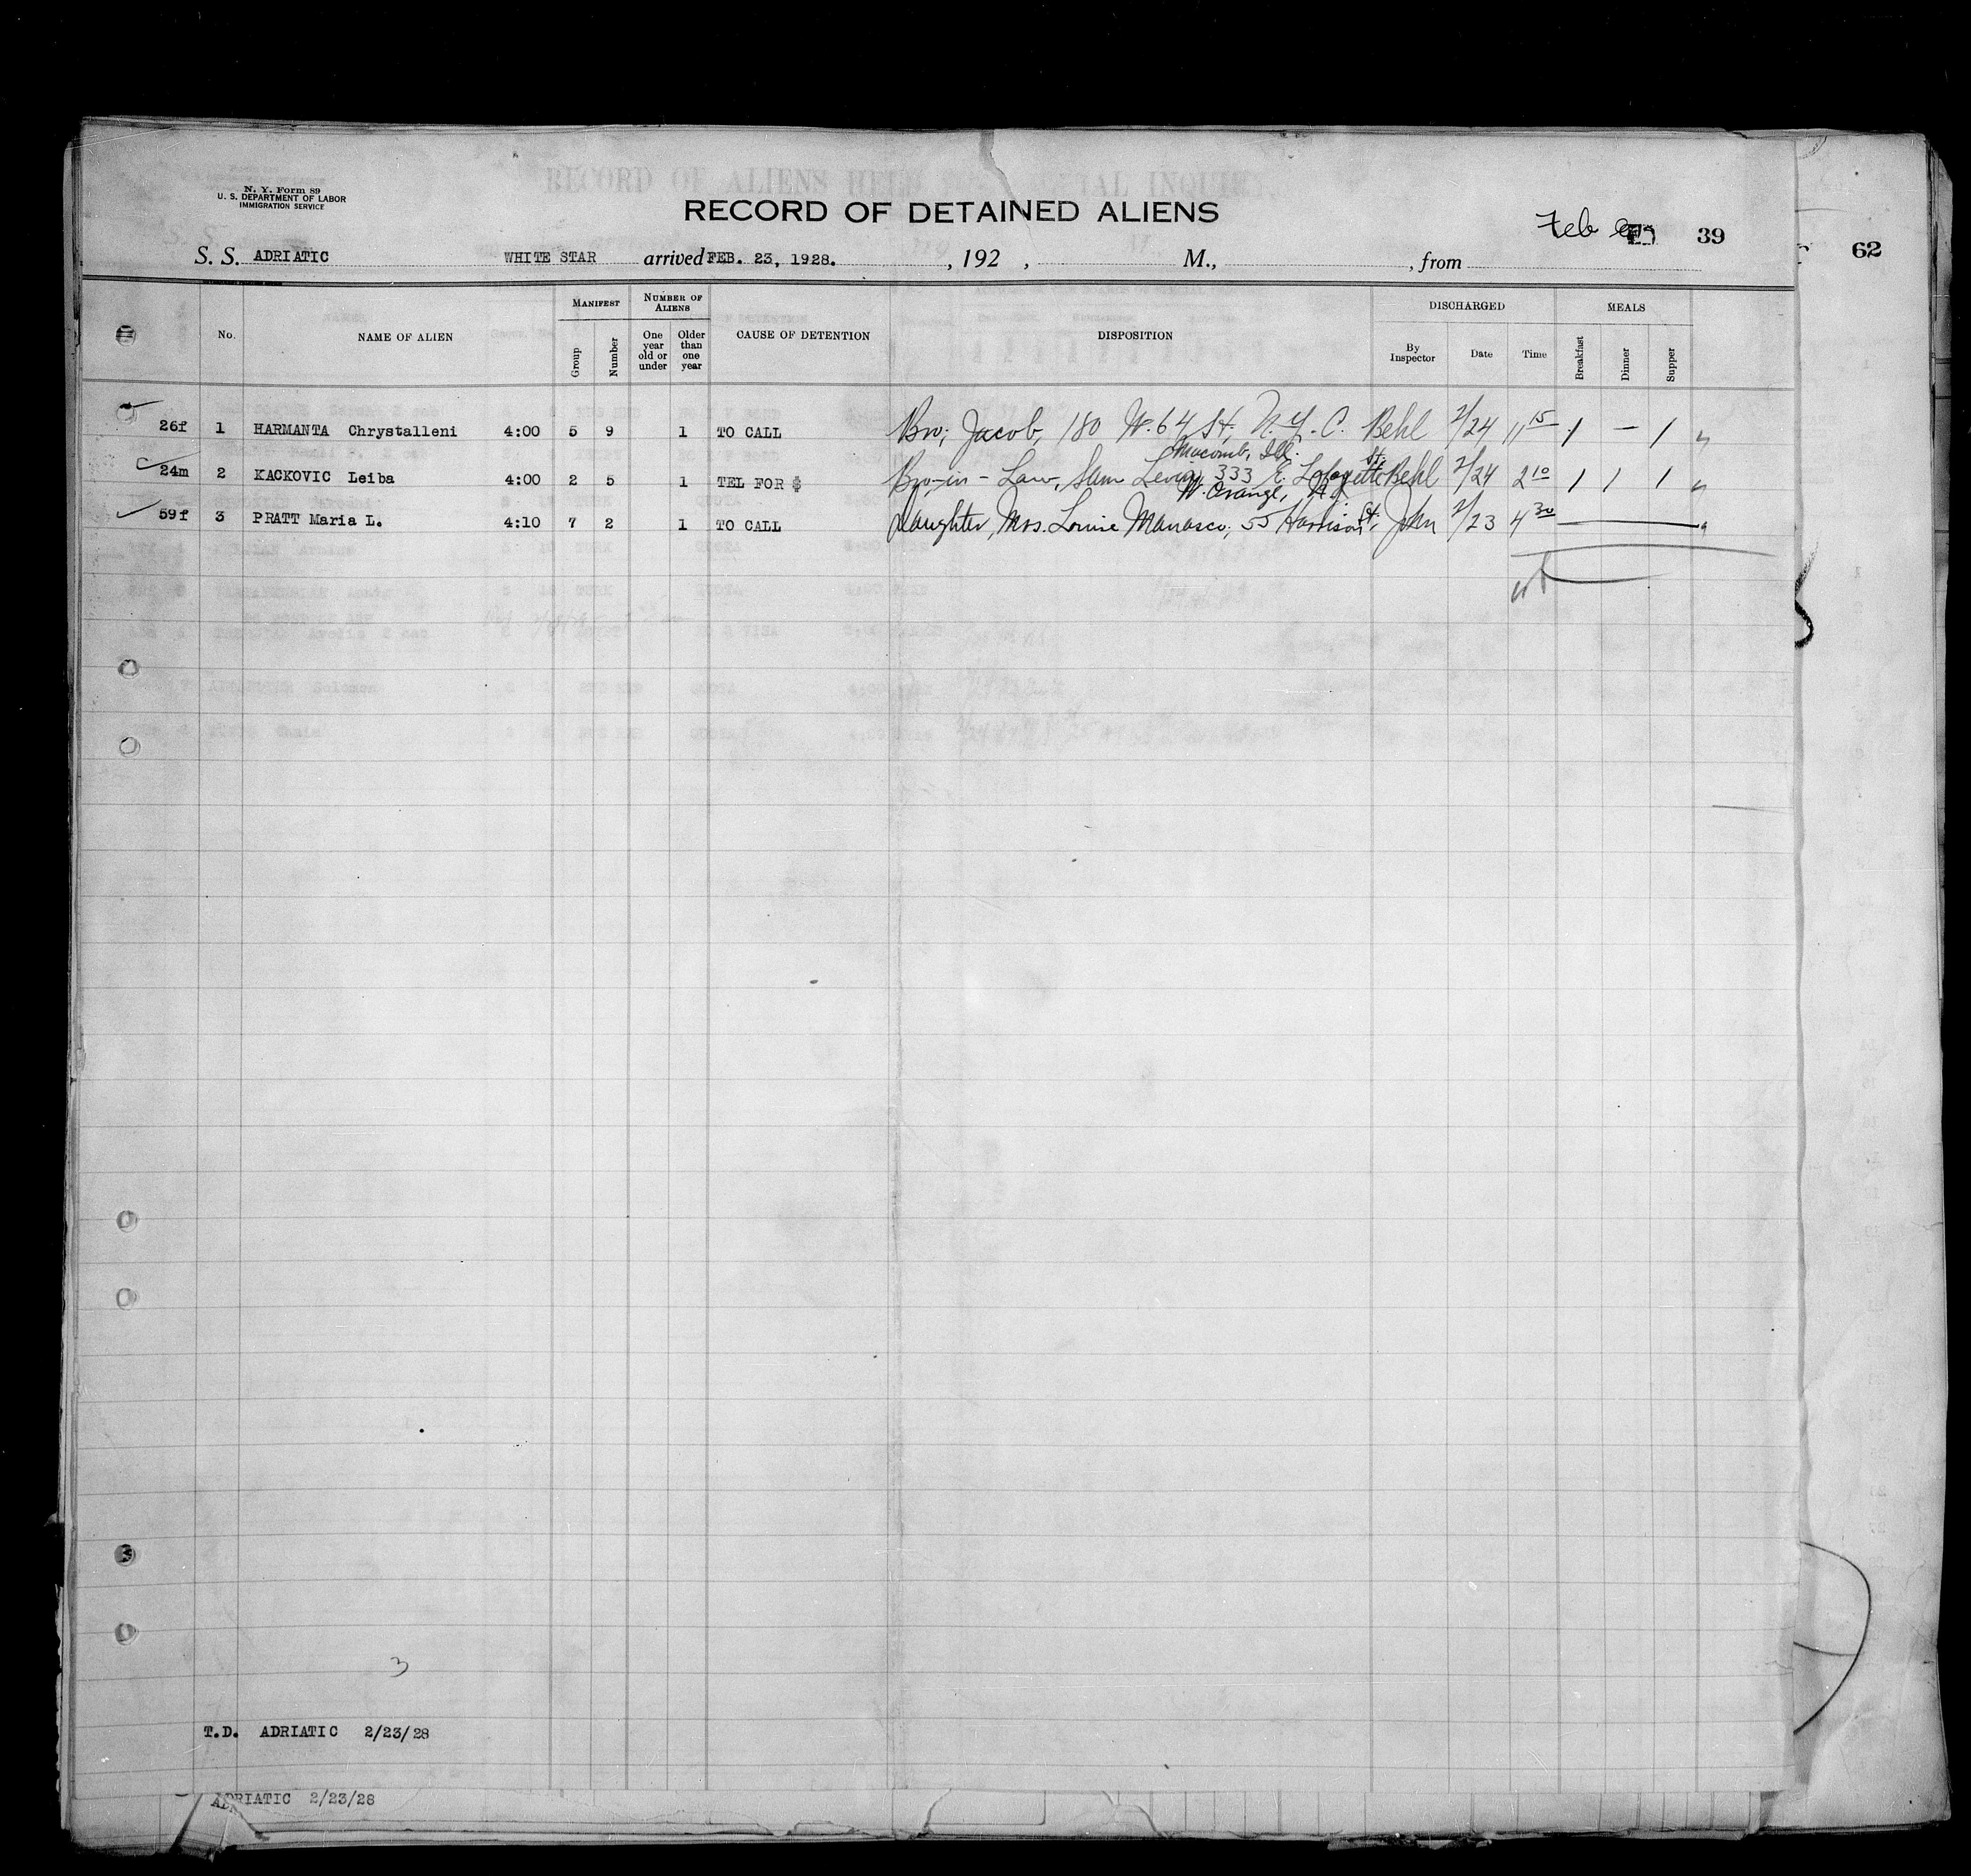 N. Y. Form 89
U. S. DEPARTMENT OF LABOR
IMMIGRATION SERVICE
RECORD OF ALIENS HELD
INQUIRY.
RECORD OF DETAINED ALIENS
Feb 39
62
S. S. ADRIATIC WHITE STAR arrived FEB. 23, 1928. , 192 , M., , from
No. NAME OF ALIEN MANIFEST Group Number NUMBER OF ALIENS One year old or under Older than one year CAUSE OF DETENTION DISPOSITION DISCHARGED By Inspector Date Time MEALS Breakfast Dinner Supper
26f 1 HARMANTA Chrystalleni 4:00 5 9 1 TO CALL Bro; Jacob, 180 W. 64 St, N.Y.C. Behl 2/24 11 15 1 — 1
Macomb, Ill.
24m 2 KACKOVIC Leiba 4:00 2 5 1 TEL FOR $ Bro-in-Law, Sam Levin, 333 E. Lafayette St. Behl 2/24 2 10 1 1 1
W. Orange, N.J.
59f 3 PRATT Maria L. 4:10 7 2 1 TO CALL Daughter, Mrs. Louise Manasco; 55 Harrison St. John 2/23 4 30
3
T.D. ADRIATIC 2/23/28
ADRIATIC 2/23/28